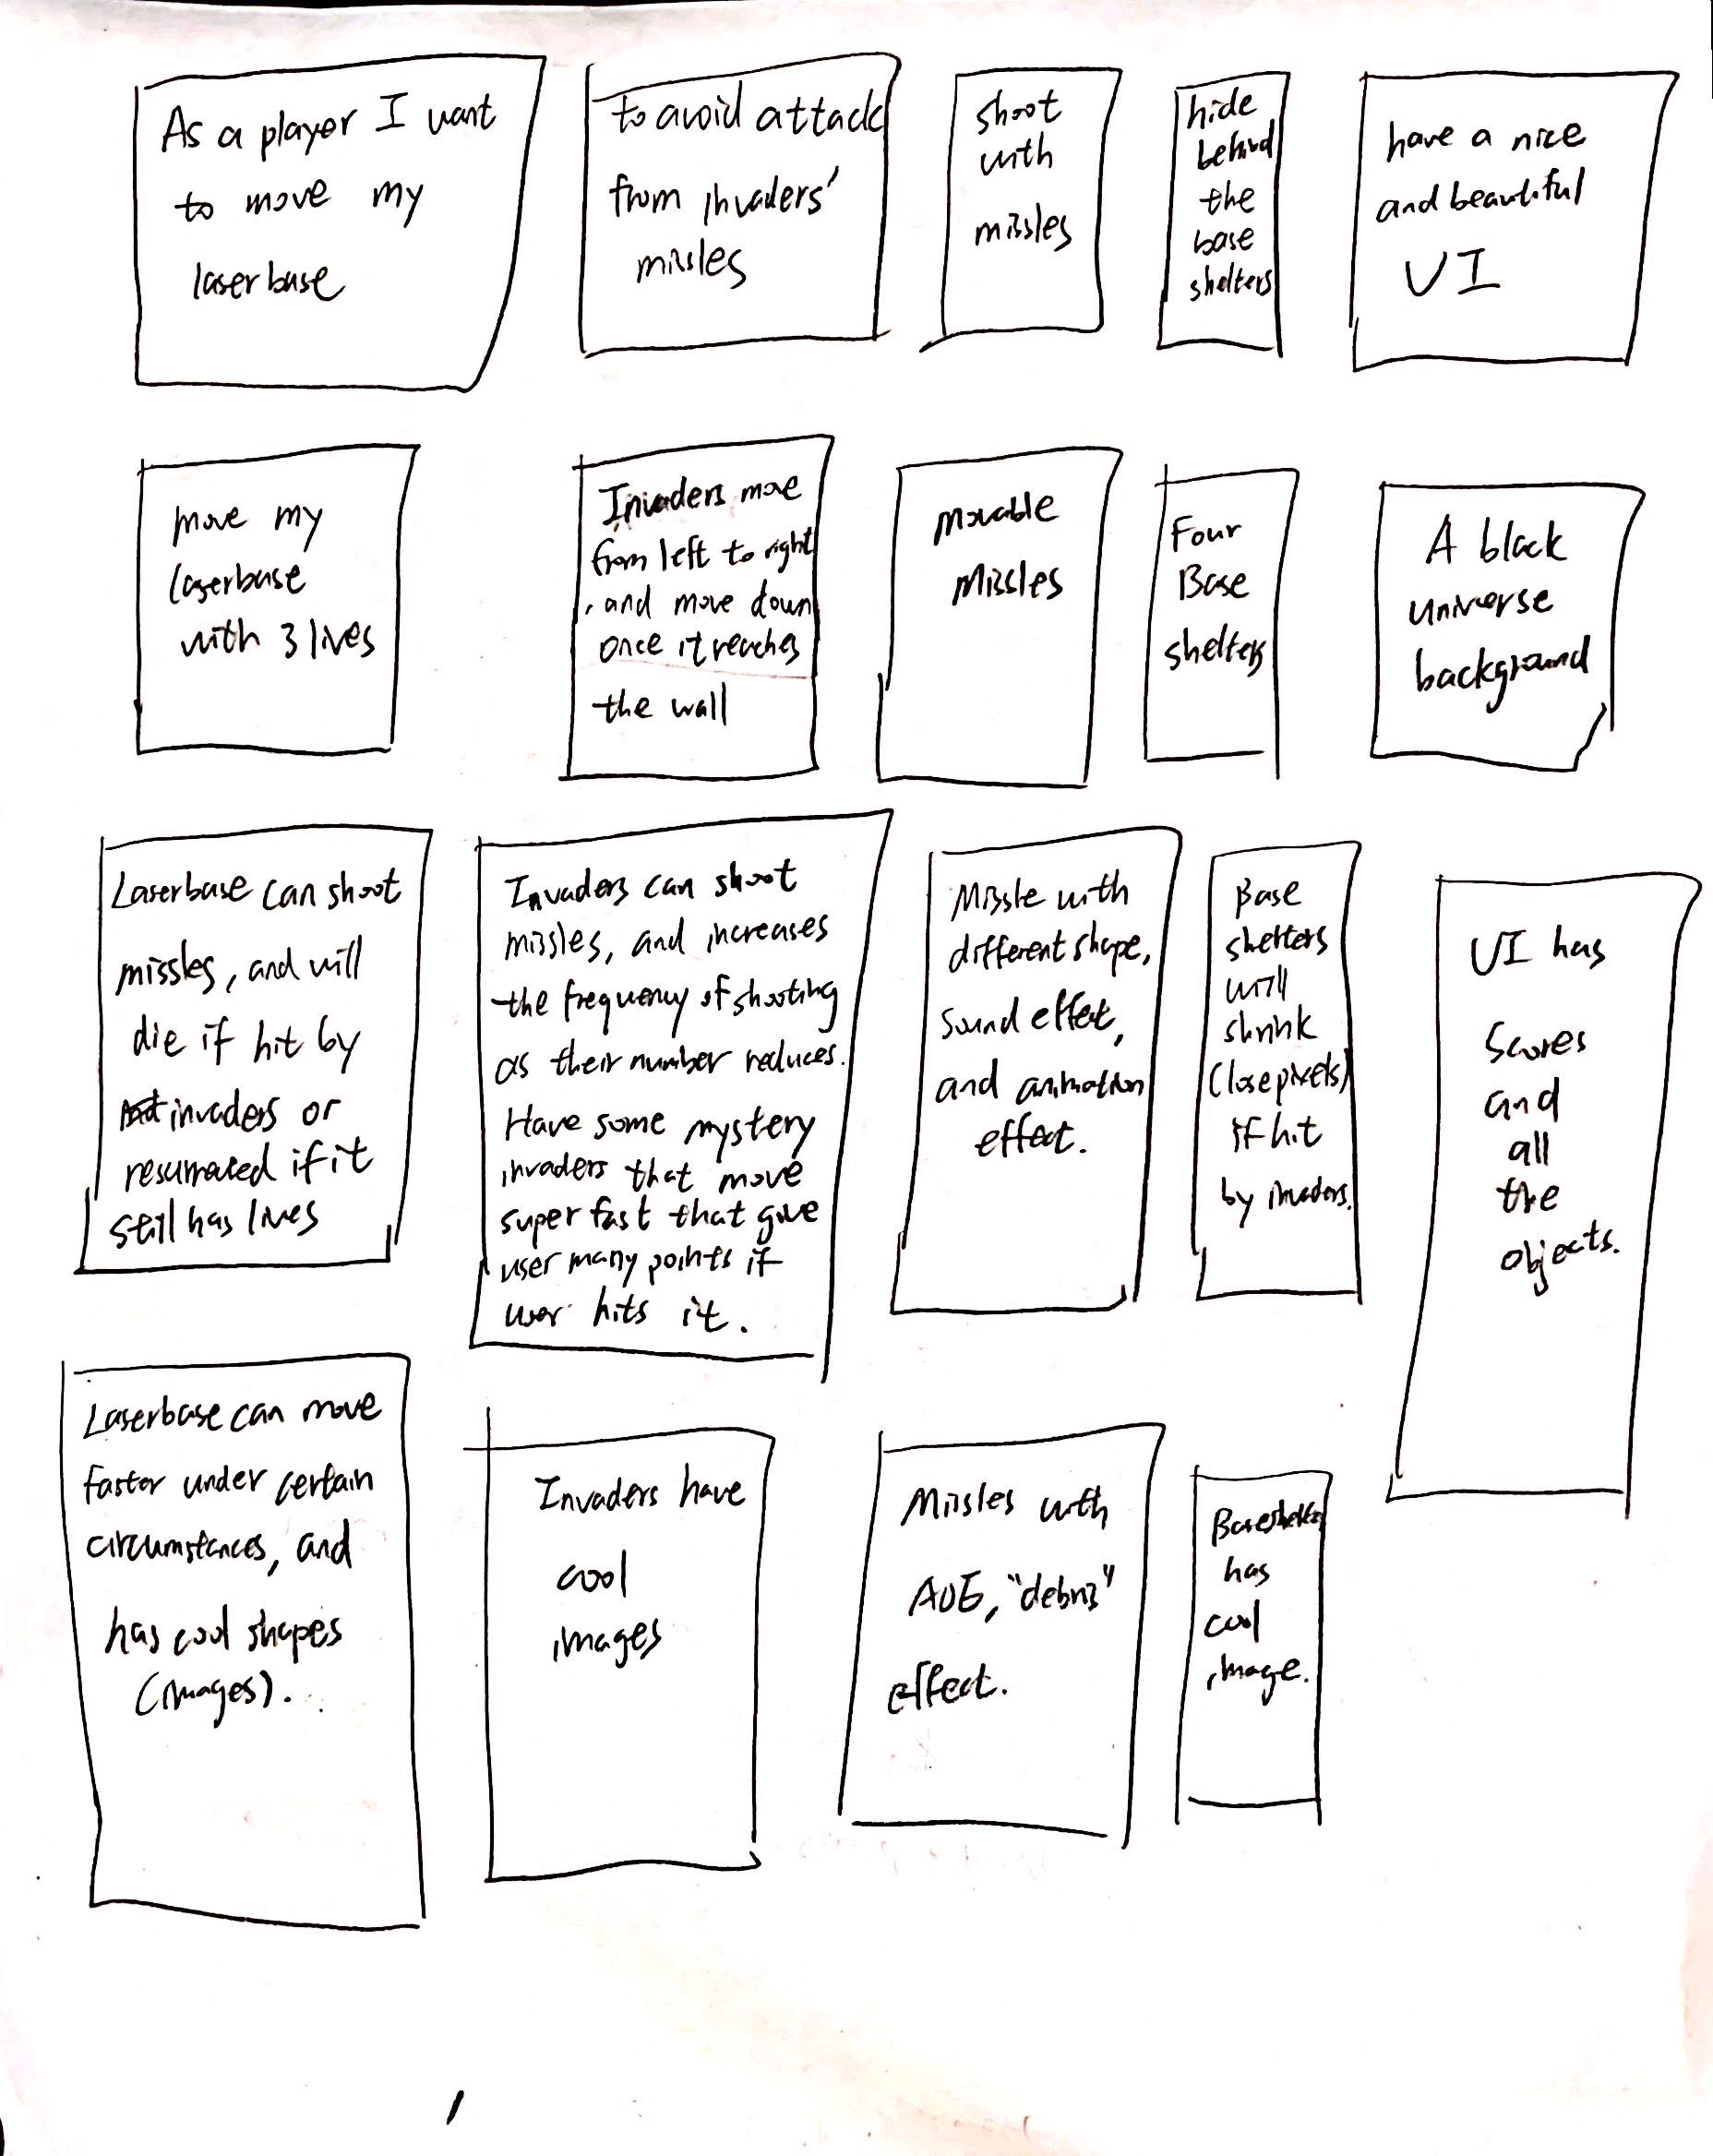 As a player I want
to move my
laserbase
to avoid attack
from invaders'
missles
shoot
with
missles
hide
behind
the
base
shelters
have a nice
and beautiful
UI
move my
laserbase
with 3 lives
Invaders move
from left to right
, and move down
once it reaches
the wall
Movable
Missles
Four
Base
shelters
A black
universe
background
Laserbase can shoot
missles, and will
die if hit by
invaders or
resurrected if it
still has lives
Invaders can shoot
missles, and increases
the frequency of shooting
as their number reduces.
Have some mystery
invaders that move
super fast that give
user many points if
user hits it.
Missle with
different shape,
sound effect,
and animation
effect.
Base
shelters
will
shrink
(lose pixels)
if hit
by invaders.
UI has
scores
and
all
the
objects.
Laserbase can move
faster under certain
circumstances, and
has cool shapes
(images).
Invaders have
cool
images
Missles with
AOE, "debris"
effect.
Baseshelter
has
cool
image.